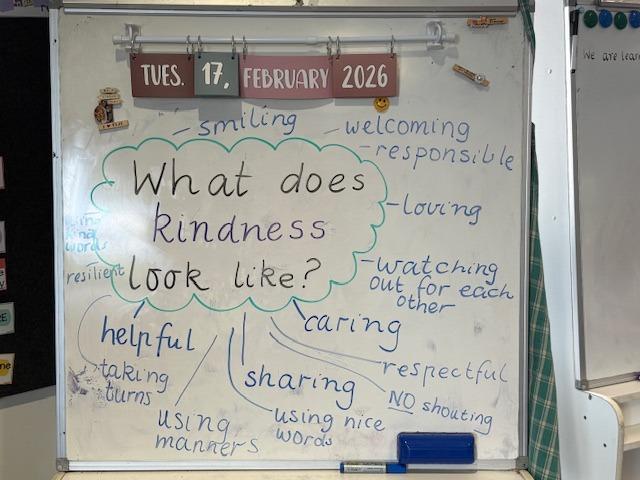 TUES. 17, FEBRUARY 2026
We are lear
smiling
welcoming
responsible
What does
kindness
look like?
loving
kind
words
resilient
watching
out for each
other
helpful
caring
taking
turns
sharing
respectful
using
manners
using nice
words
NO shouting